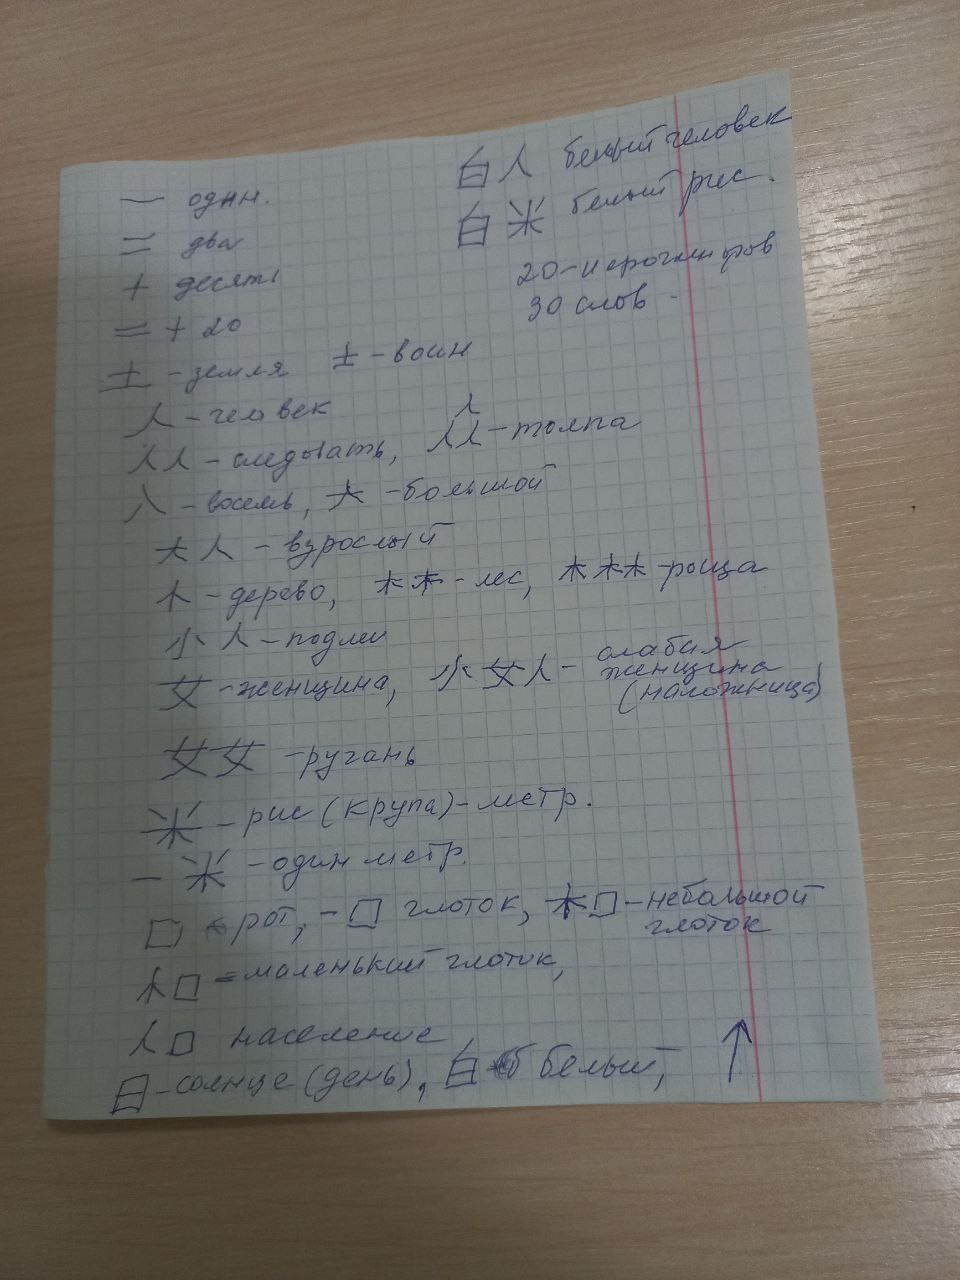 一 один.
二 два
十 десять
二十 20
土 - земля 士 - воин
人 - человек
人人 - следовать, 人人人 - толпа
八 - восемь, 大 - большой
大人 - взрослый
木 - дерево, 木木 - лес, 木木木 - роща
小人 - подлец
女 - женщина, 小女人 - слабая женщина (наложница)
女女 - ругань
米 - рис (крупа) - метр.
一米 - один метр.
口 рот, 一口 глоток, 大口 - небольшой глоток
小口 = маленький глоток,
人口 население
日 - солнце (день), 白 белый, ↑
白人 белый человек
白米 белый рис.
20 - иероглифов
30 слов -